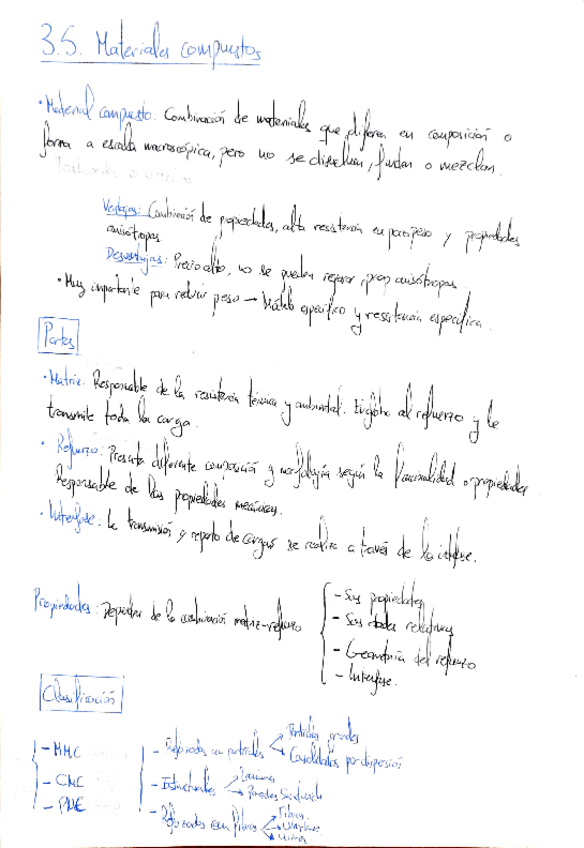 3.5. Materiales compuestos
· Material compuesto: Combinación de materiales que difieren en composición o
forma a escala macroscópica, pero no se disuelvan, fundan o mezclan.
Ventajas: Combinación de propiedades, alta resistencia en poco peso y propiedades
anisótropas.
Desventajas: Precio alto, no se pueden reparar, prop anisótropas.
· Muy importante para reducir peso → Módulo específico y resistencia específica.
Partes
· Matriz: Responsable de la resistencia térmica y ambiental. Engloba al refuerzo y le
transmite toda la carga.
· Refuerzo: Presenta diferente composición y morfología según la funcionalidad o propiedades
Responsable de las propiedades mecánicas.
· Interfase: La transmisión y reparto de cargas se realiza a través de la interfase.
Propiedades: Dependen de la combinación matriz-refuerzo
- Sus propiedades
- Sus relativas
- Geometría del refuerzo
- Interfase.
Clasificación
- MMC
- CMC
- PMC
- Reforzados con partículas
Partículas grandes
Consolidados por dispersión
- Estructurales
Laminares
Paneles Sandwich
- Reforzados con fibras
Fibras